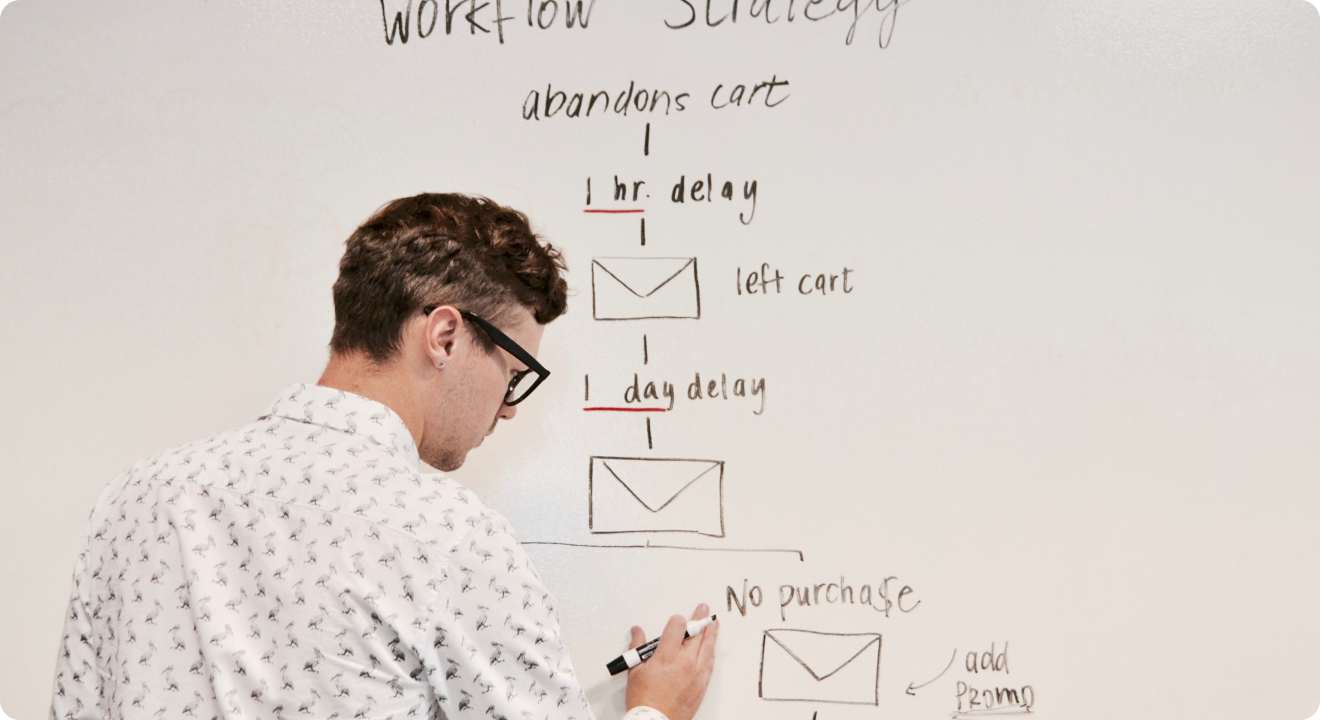 Workflow Strategy
abandons cart
1 hr. delay
left cart
1 day delay
No purchase
add
PROMO